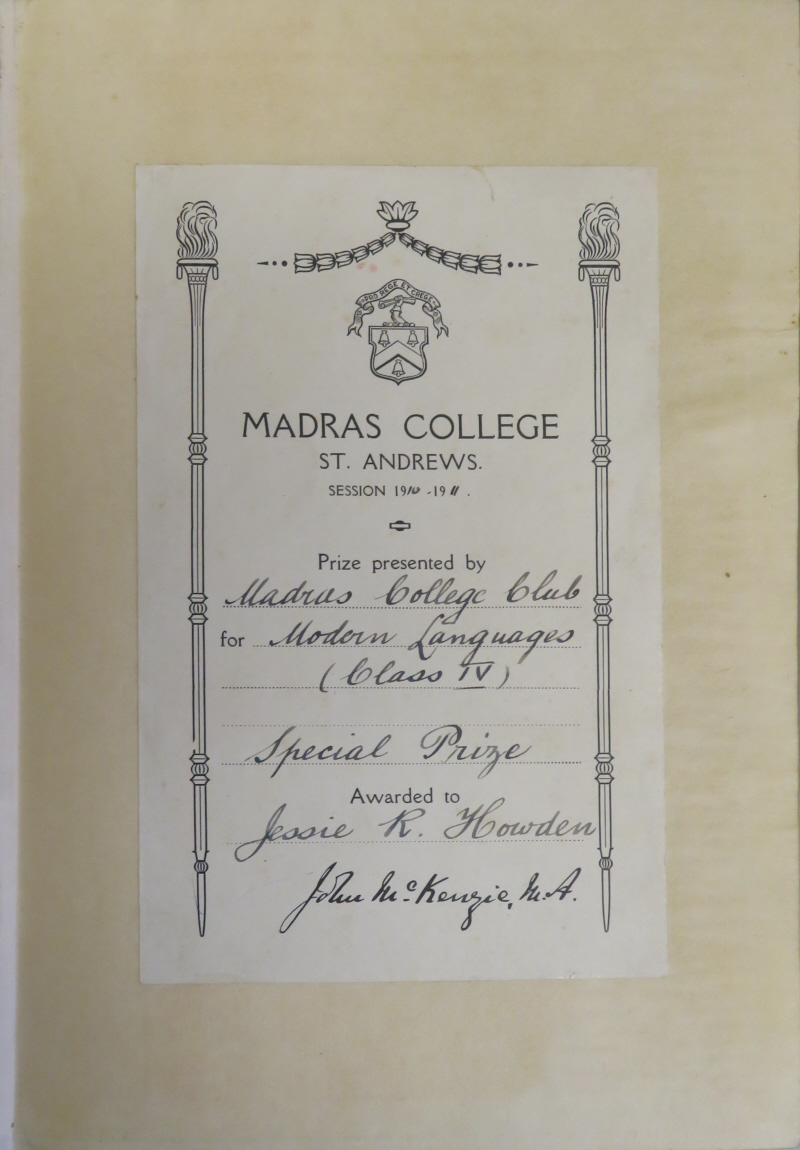 PRO REGE ET GREGE
MADRAS COLLEGE
ST. ANDREWS.
SESSION 1910-1911.
Prize presented by
Madras College Club
for Modern Languages
(Class IV)
Special Prize
Awarded to
Jessie R. Howden
John McKenzie, M.A.